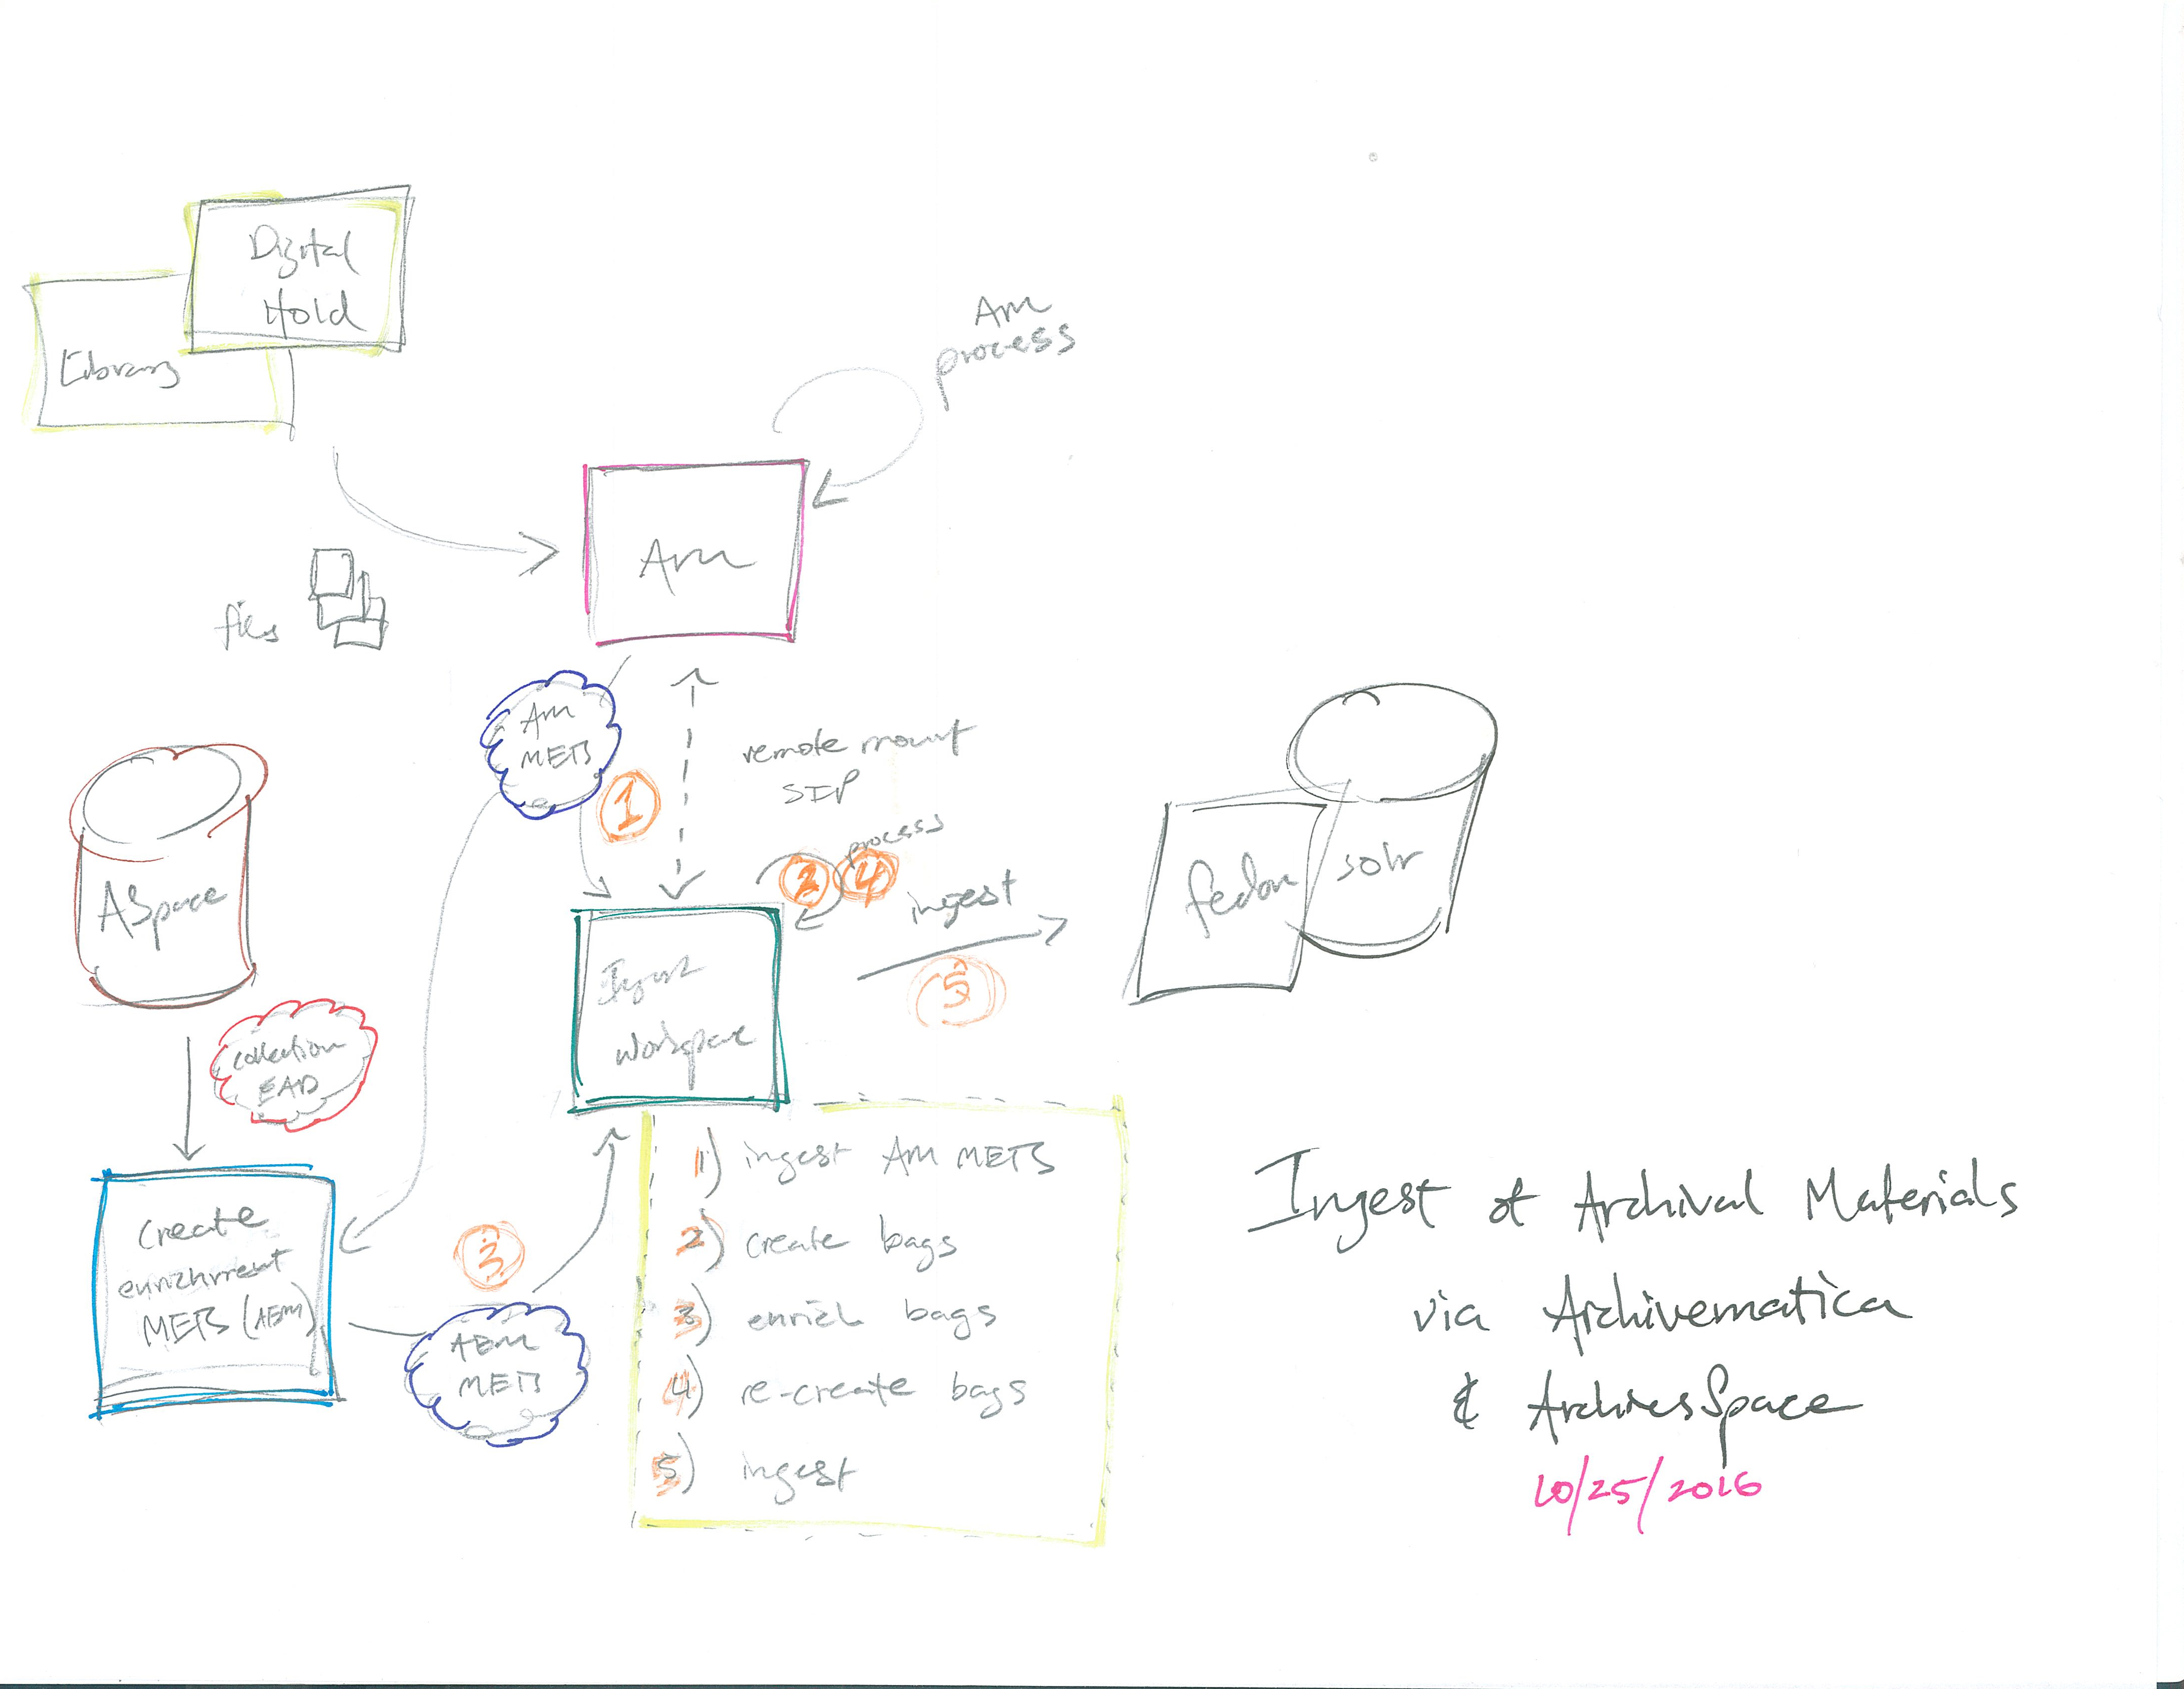 Digital
Hold
Library
Am
process
Am
files
Am
METS
1
remote mount
SIP
process
2
4
ingest
5
fedora
solr
ASpace
Ingest
workspace
collection
EAD
Create
enrichment
METS (AEM)
3
AEM
METS
1) ingest AM METS
2) create bags
3) enrich bags
4) re-create bags
5) ingest
Ingest of Archival Materials
via Archivematica
& ArchivesSpace
10/25/2016